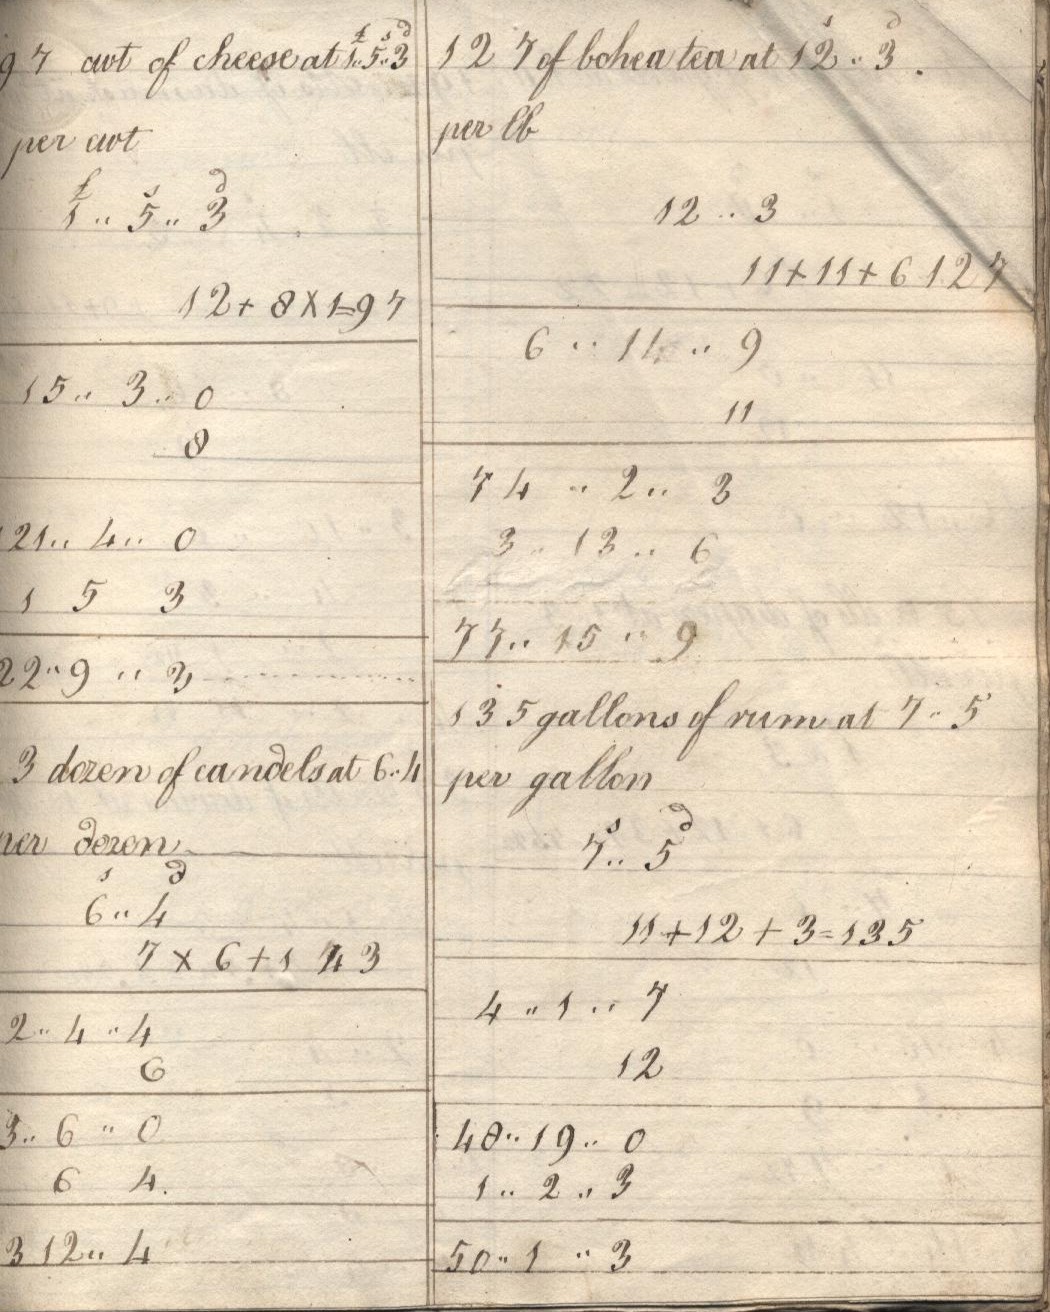 97 cwt of cheese at £1..5s..3d
per cwt
£ s d
1 .. 5 .. 3
12 + 8 X 1=97
15 .. 3 .. 0
8
121 .. 4 .. 0
1 5 3
22 .. 9 .. 3
3 dozen of candels at 6..4
per dozen
s d
6 .. 4
7 X 6 + 1 43
2 .. 4 .. 4
6
3 .. 6 .. 0
6 4.
3 12 .. 4
s d
127 of bohea tea at 12 .. 3.
per lb
12 .. 3
11+11+6 127
6 .. 14 .. 9
11
74 .. 2 .. 3
3 .. 13 .. 6
77 .. 15 .. 9
135 gallons of rum at 7 .. 5
per gallon
s d
7 .. 5
11+12 + 3=135
4 .. 1 .. 7
12
48 .. 19 .. 0
1 .. 2 .. 3
50 .. 1 .. 3